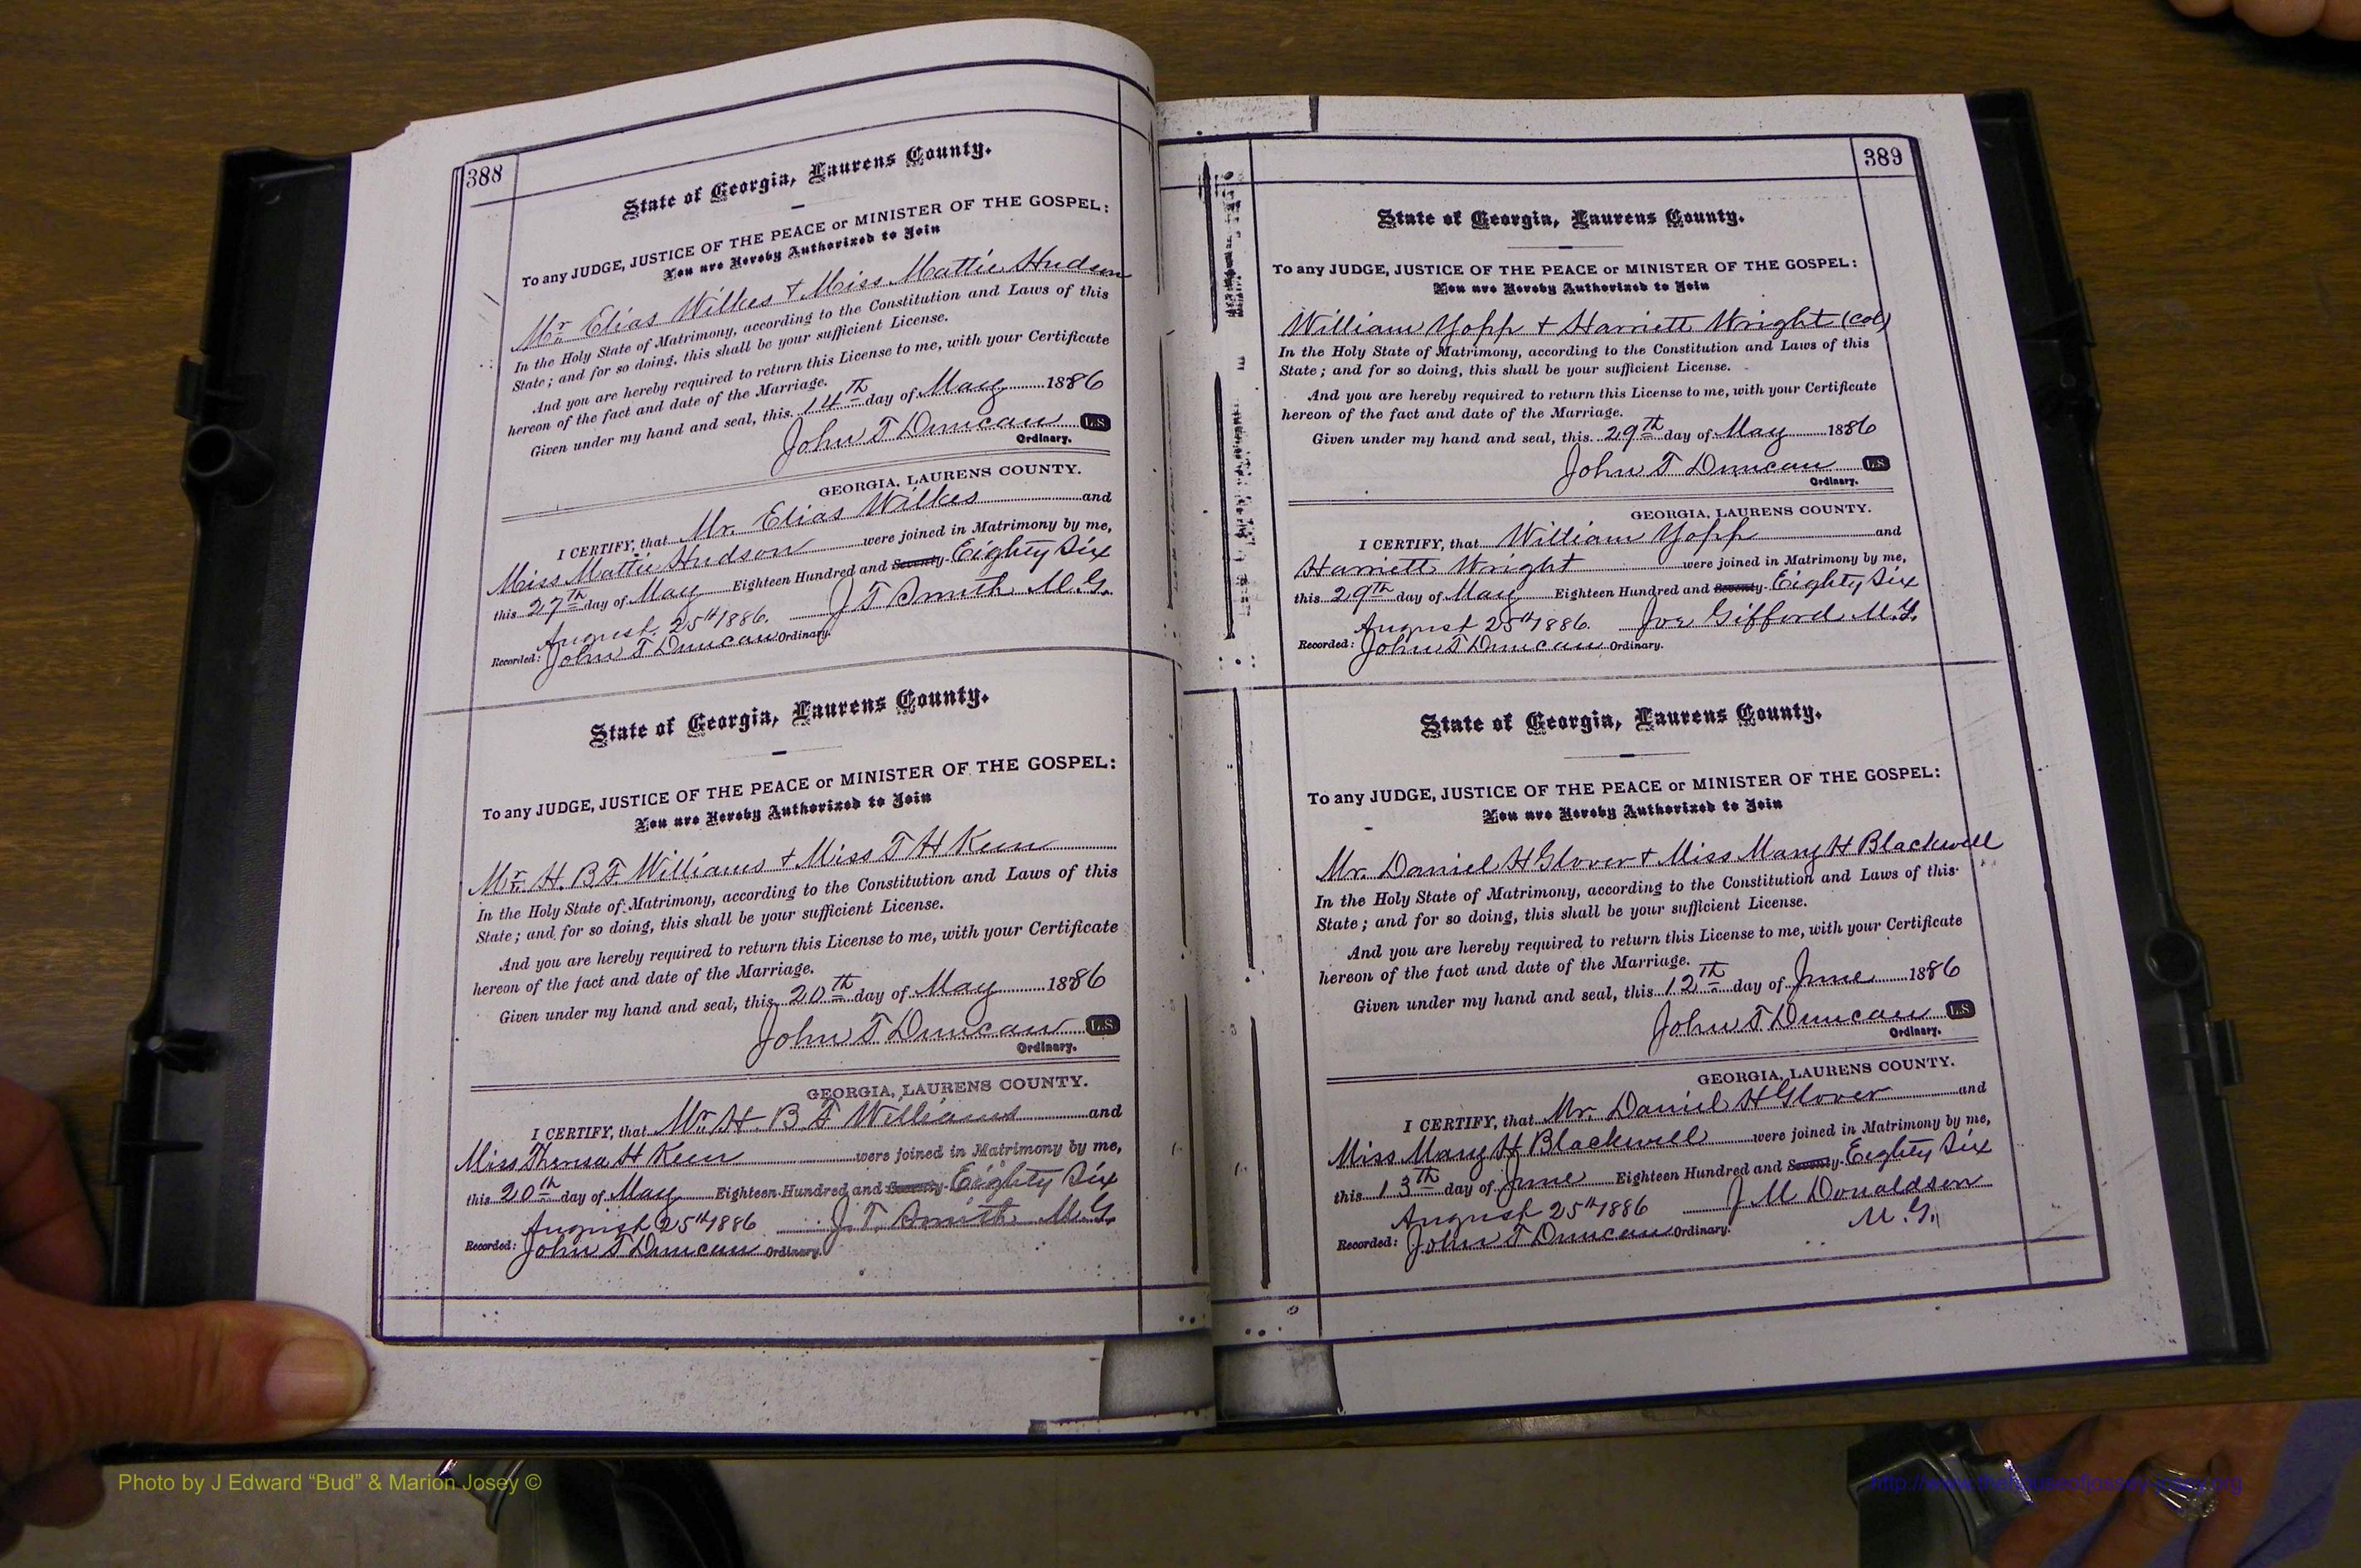 388
State of Georgia, Laurens County.
To any JUDGE, JUSTICE OF THE PEACE or MINISTER OF THE GOSPEL:
You are Hereby Authorized to Join
Mr. Elias Wilkes + Miss Mattie Hudson
In the Holy State of Matrimony, according to the Constitution and Laws of this
State; and for so doing, this shall be your sufficient License.
And you are hereby required to return this License to me, with your Certificate
hereon of the fact and date of the Marriage.
Given under my hand and seal, this 14th day of May 1886
John T Duncan L.S.
Ordinary.
GEORGIA, LAURENS COUNTY.
I CERTIFY, that Mr. Elias Wilkes and
Miss Mattie Hudson were joined in Matrimony by me,
this 27th day of May Eighteen Hundred and Seventy- Eighty Six
August 25th 1886. J T Smith M.G.
Recorded: John T Duncan Ordinary.
State of Georgia, Laurens County.
To any JUDGE, JUSTICE OF THE PEACE or MINISTER OF THE GOSPEL:
You are Hereby Authorized to Join
Mr. H. B F. Williams + Miss T H Keen
In the Holy State of Matrimony, according to the Constitution and Laws of this
State; and for so doing, this shall be your sufficient License.
And you are hereby required to return this License to me, with your Certificate
hereon of the fact and date of the Marriage.
Given under my hand and seal, this 20th day of May 1886
John T Duncan L.S.
Ordinary.
GEORGIA, LAURENS COUNTY.
I CERTIFY, that Mr. H. B F Williams and
Miss H Keen were joined in Matrimony by me,
this 20th day of May Eighteen Hundred and Seventy- Eighty Six
August 25th 1886 J. T. Smith M.G.
Recorded: John T Duncan Ordinary.
389
State of Georgia, Laurens County.
To any JUDGE, JUSTICE OF THE PEACE or MINISTER OF THE GOSPEL:
You are Hereby Authorized to Join
William Yopp + Harriett Wright (Col)
In the Holy State of Matrimony, according to the Constitution and Laws of this
State; and for so doing, this shall be your sufficient License.
And you are hereby required to return this License to me, with your Certificate
hereon of the fact and date of the Marriage.
Given under my hand and seal, this 29th day of May 1886
John T Duncan L.S.
Ordinary.
GEORGIA, LAURENS COUNTY.
I CERTIFY, that William Yopp and
Harriett Wright were joined in Matrimony by me,
this 29th day of May Eighteen Hundred and Seventy- Eighty Six
August 25th 1886. Joe Gifford M.G.
Recorded: John T Duncan Ordinary.
State of Georgia, Laurens County.
To any JUDGE, JUSTICE OF THE PEACE or MINISTER OF THE GOSPEL:
You are Hereby Authorized to Join
Mr. Daniel H Glover + Miss Mary H Blackwell
In the Holy State of Matrimony, according to the Constitution and Laws of this
State; and for so doing, this shall be your sufficient License.
And you are hereby required to return this License to me, with your Certificate
hereon of the fact and date of the Marriage.
Given under my hand and seal, this 12th day of June 1886
John T Duncan L.S.
Ordinary.
GEORGIA, LAURENS COUNTY.
I CERTIFY, that Mr. Daniel H Glover and
Miss Mary H Blackwell were joined in Matrimony by me,
this 13th day of June Eighteen Hundred and Seventy- Eighty Six
August 25th 1886 J M Donaldson
M.G.
Recorded: John T Duncan Ordinary.
Photo by J Edward “Bud” & Marion Josey ©